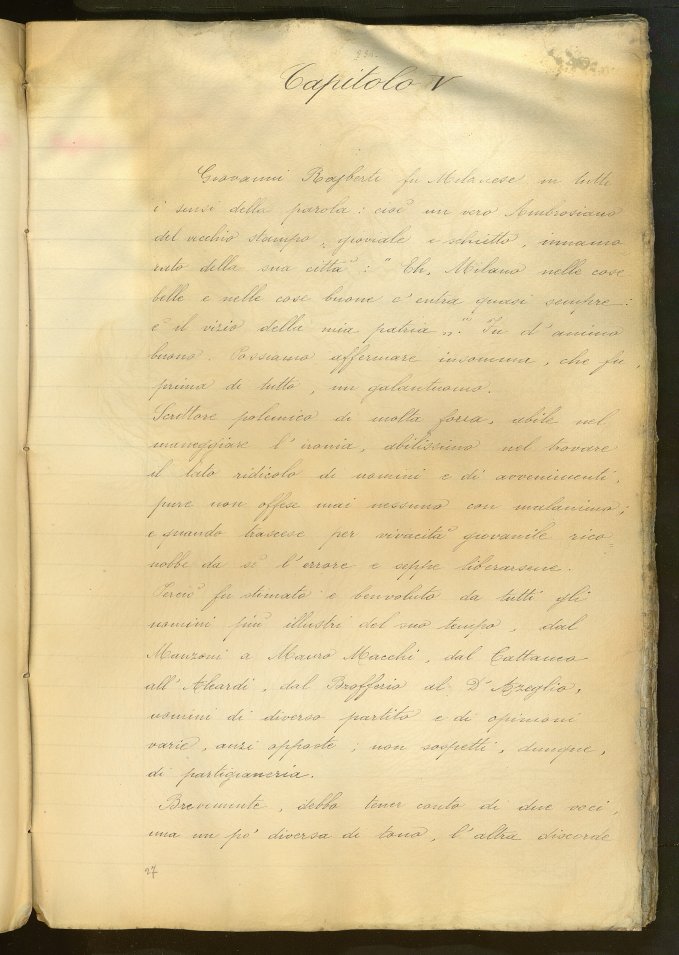 Capitolo V
Giovanni Rajberti fu Milanese in tutti
i sensi della parola: cioè un vero Ambrosiano
del vecchio stampo, gioviale e schietto, innamo
rato della sua città: " Eh, Milano nelle cose
belle e nelle cose buone c'entra quasi sempre:
è il vizio della mia patria ". Fu d'animo
buono. Possiamo affermare insomma, che fu,
prima di tutto, un galantuomo.
Scrittore polemico di molta forza, abile nel
maneggiare l'ironia, abilissimo nel trovare
il lato ridicolo di uomini e di avvenimenti,
pure non offese mai nessuno con malanimo;
e quando trascese per vivacità giovanile rico
nobbe da sè l'errore e seppe liberarsene.
Perciò fu stimato e benvoluto da tutti gli
uomini più illustri del suo tempo, dal
Manzoni a Mauro Macchi, dal Cattaneo
all'Aleardi, dal Brofferio al D'Azeglio,
uomini di diverso partito e di opinioni
varie, anzi opposte; non sospetti, dunque,
di partigianeria.
Brevemente, debbo tener conto di due voci,
una un po' diversa di tono, l'altra discorde
27